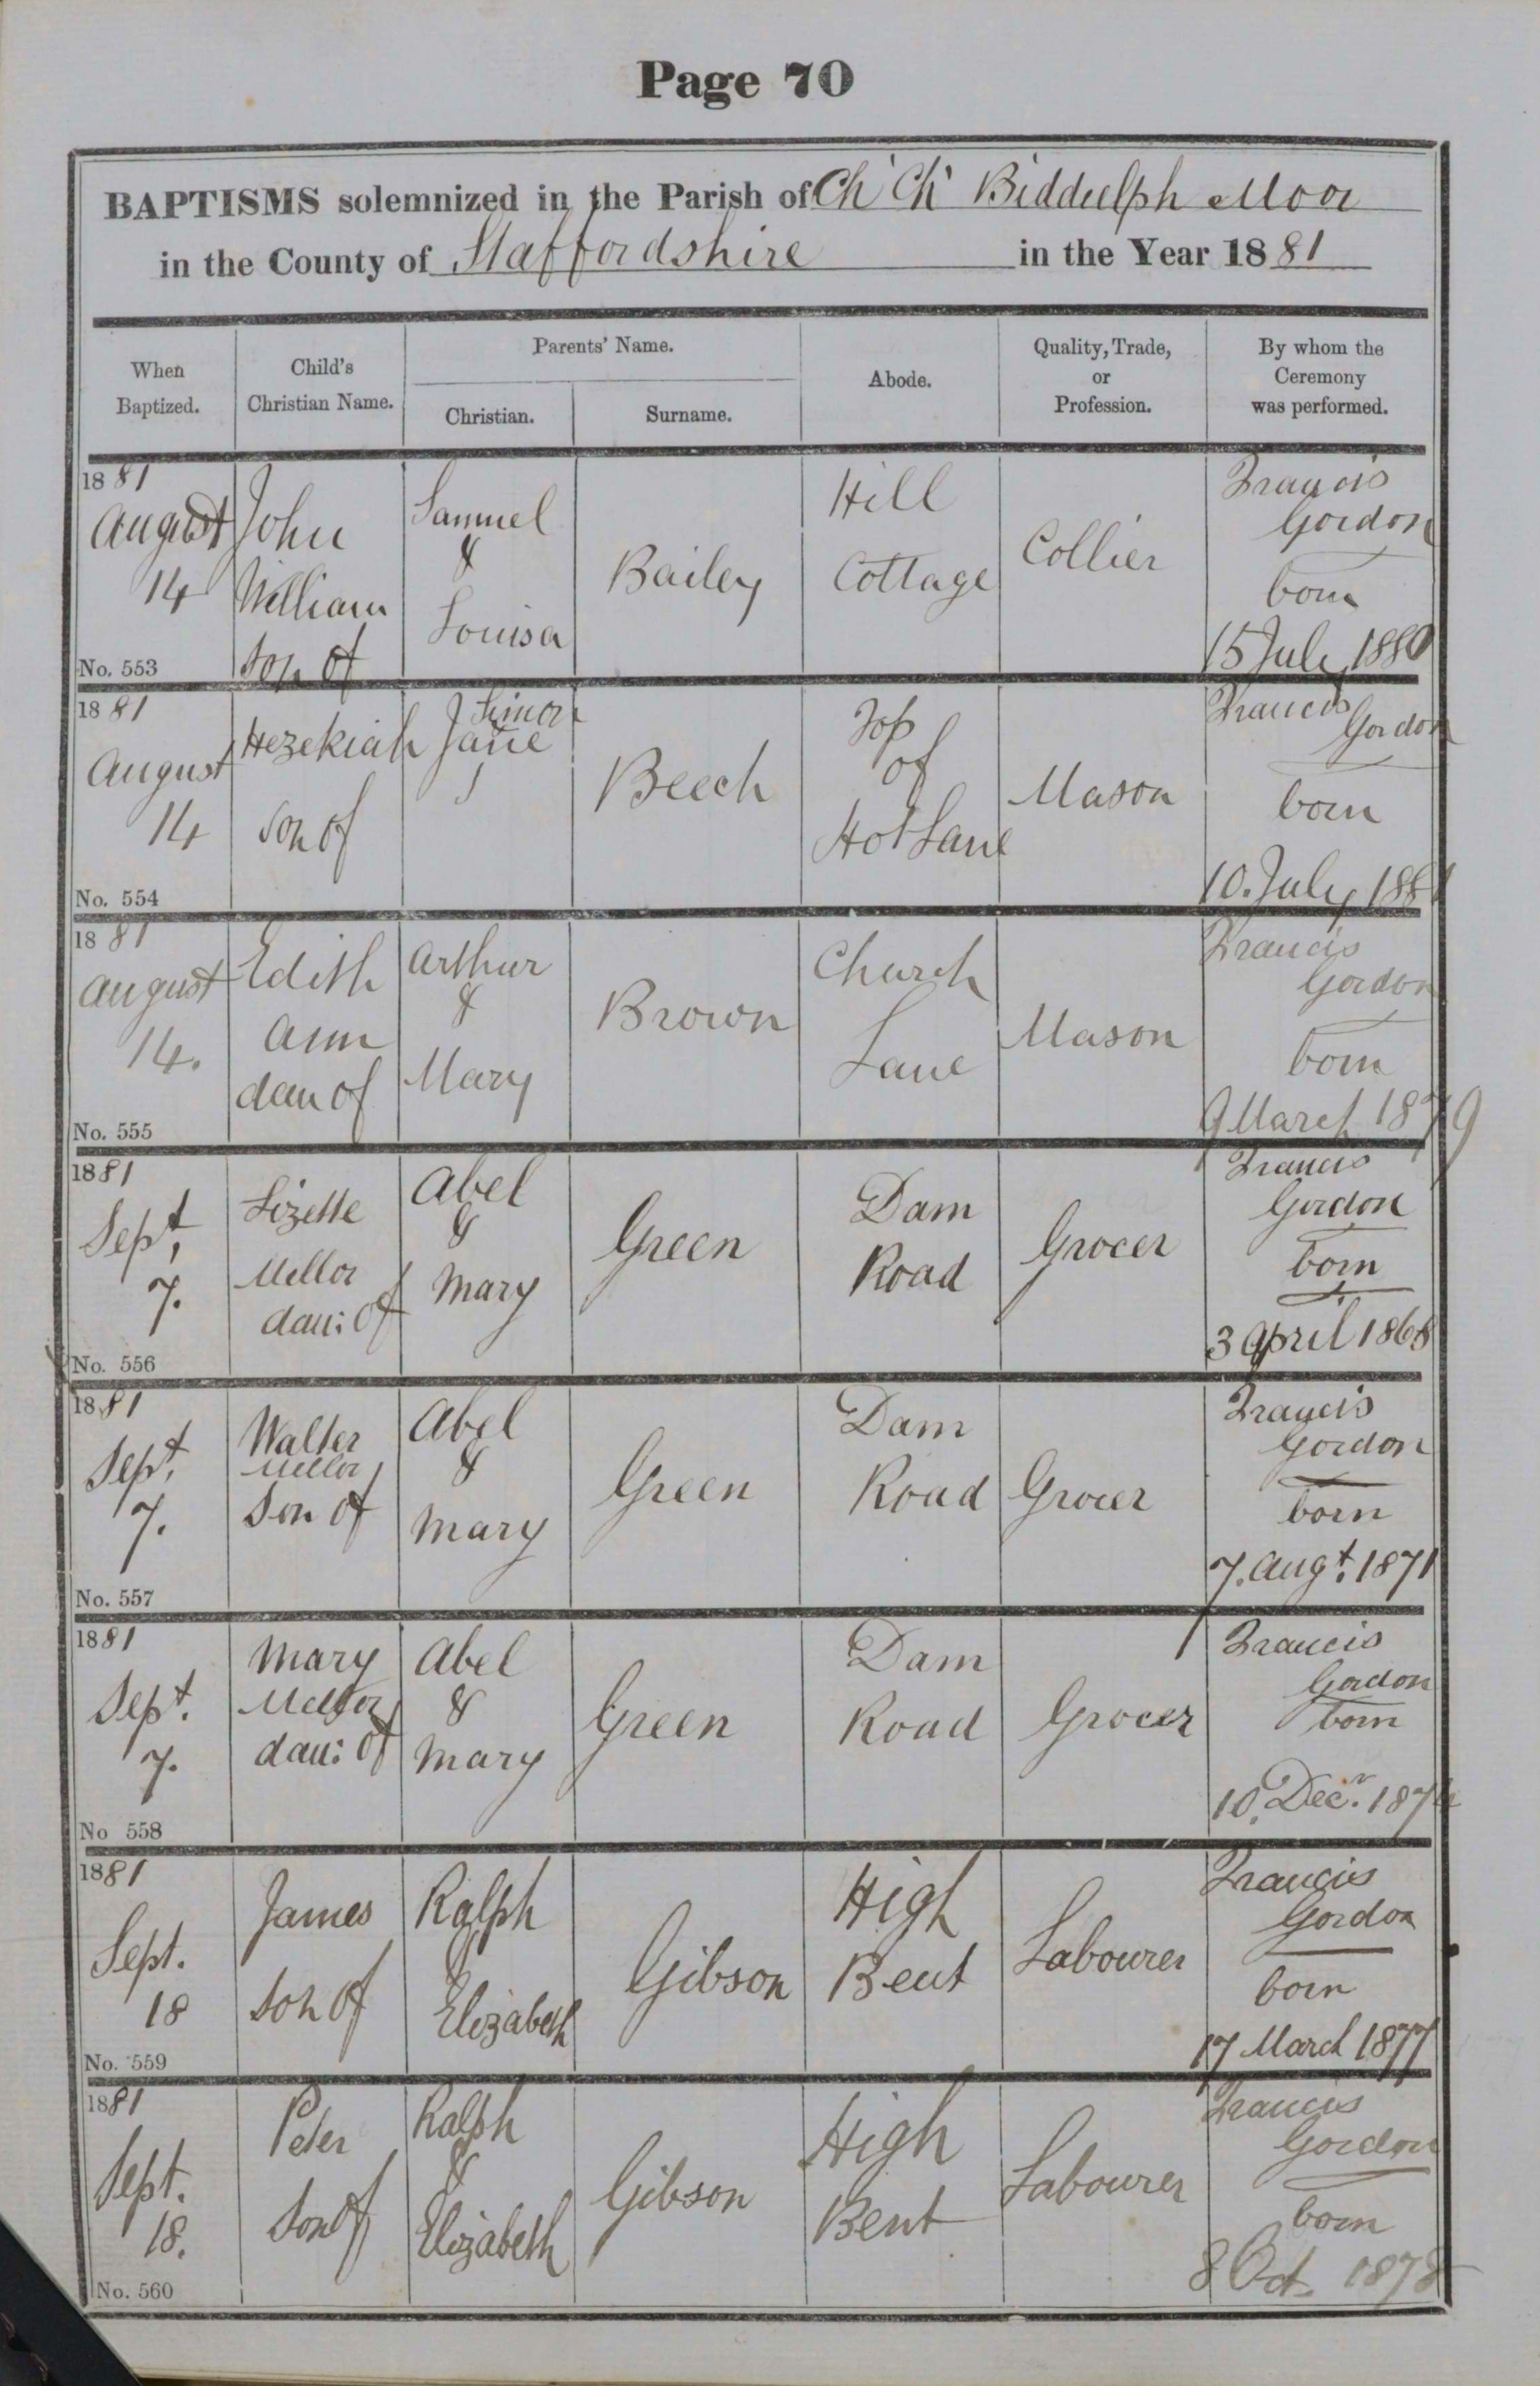 Page 70
BAPTISMS solemnized in the Parish of Ch Ch Biddulph Moor
in the County of Staffordshire in the Year 1881
When Baptized.
Child's Christian Name.
Parents' Name.
Christian.
Surname.
Abode.
Quality, Trade, or Profession.
By whom the Ceremony was performed.
1881
August
14
No. 553
John
William
Son of
Samuel
&
Louisa
Bailey
Hill
Cottage
Collier
Francis
Gordon
born
15 July 1880
1881
August
14
No. 554
Hezekiah
Son of
Simon
Jane
Beech
Top
of
Hot Lane
Mason
Francis
Gordon
born
10. July 1881
1881
August
14.
No. 555
Edith
Ann
dau of
Arthur
&
Mary
Brown
Church
Lane
Mason
Francis
Gordon
born
9 March 1879
1881
Sept,
7.
No. 556
Lizette
Mellor
dau: of
Abel
&
Mary
Green
Dam
Road
Grocer
Francis
Gordon
born
3 April 1868
1881
Sept,
7.
No. 557
Walter
Mellor
Son of
Abel
&
Mary
Green
Dam
Road
Grocer
Francis
Gordon
born
7. Augt. 1871
1881
Sept.
7.
No 558
Mary
Mellor
dau: of
Abel
&
Mary
Green
Dam
Road
Grocer
Francis
Gordon
born
10. Decr.
1881
Sept.
18
No. 559
James
Son of
Ralph
&
Elizabeth
Gibson
High
Bent
Labourer
Francis
Gordon
born
17 March 1877
1881
Sept.
18.
No. 560
Peter
Son of
Ralph
&
Elizabeth
Gibson
High
Bent
Labourer
Francis
Gordon
born
8 Oct. 1878